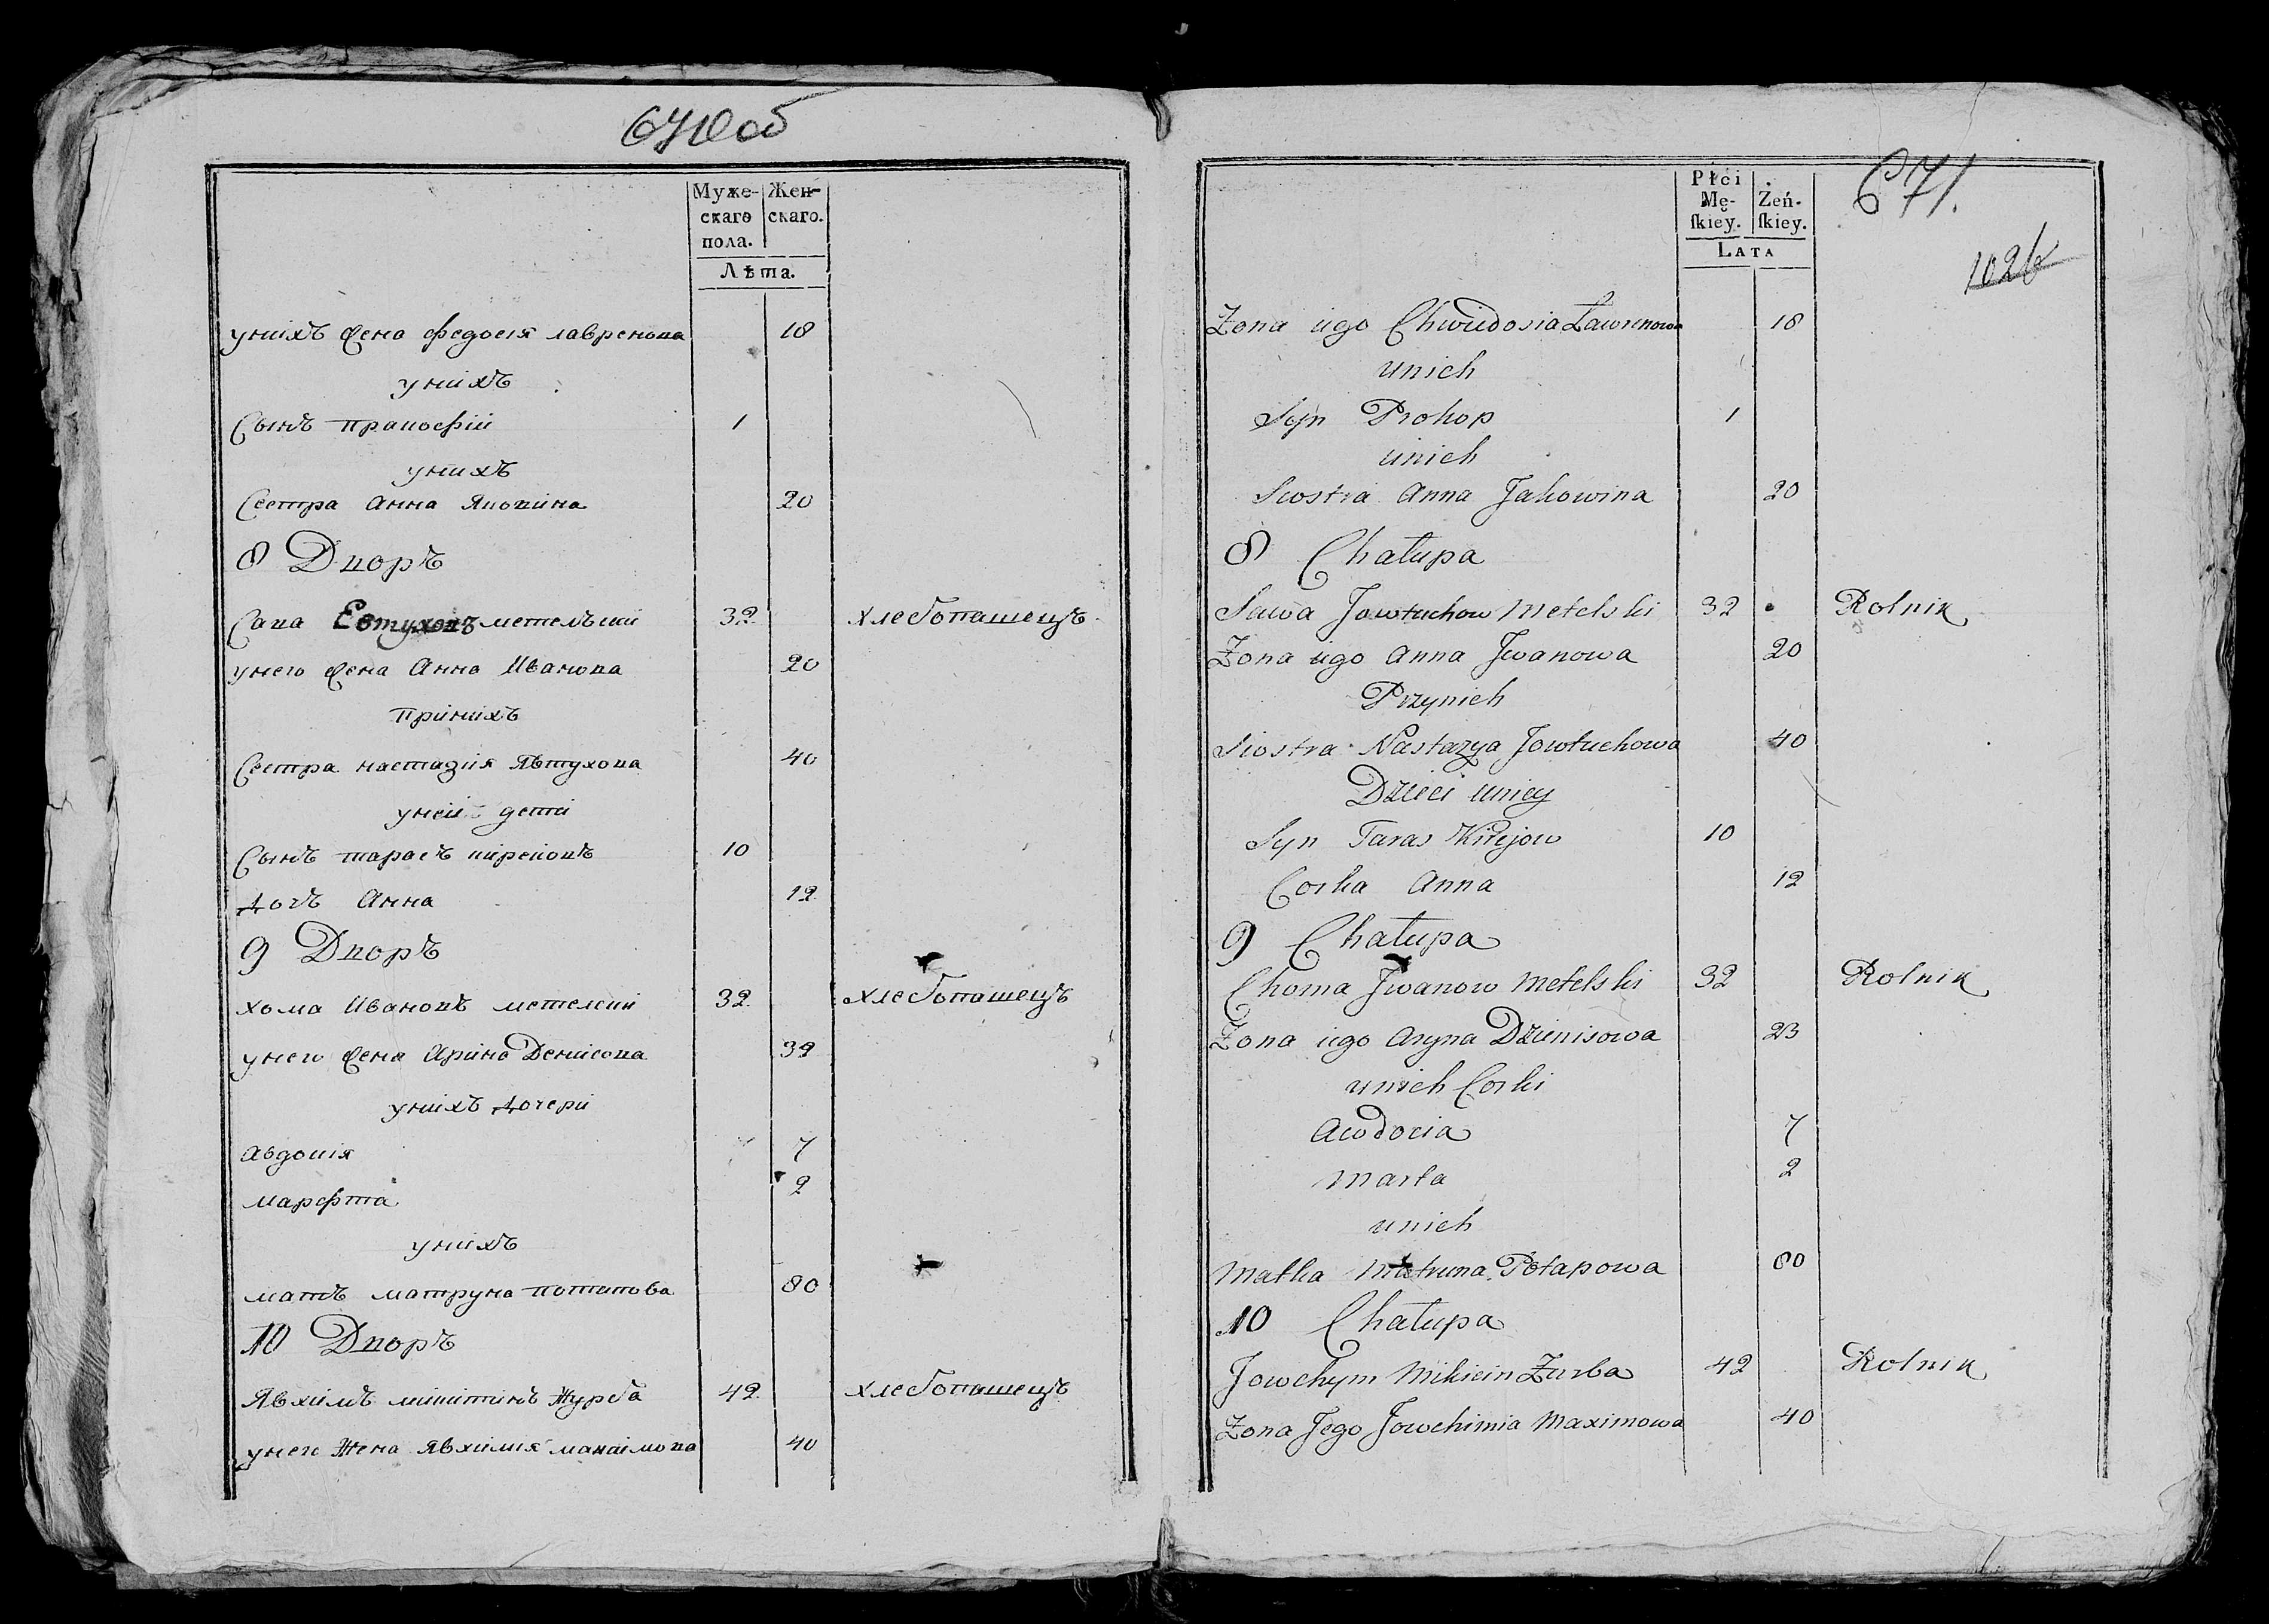 670об
Муже-
скаго
пола.
Жен-
скаго.
Лѣта.
унихъ жена федосія лавренова 18
унихъ
Сынъ пракофій 1
унихъ
Сестра Анна Яковина 20
8 Дворъ
Сава Евтуховъ метелъски 32 хлебопашецъ
унего жена Анна Иванова 20
При нихъ
Сестра настазія Явтухова 40
уней дети
Сынъ тарасъ кирейовъ 10
дочъ Анна 12
9 Дворъ
хома Ивановъ метелски 32 хлебопашецъ
унего жена Арина Денисова 32
унихъ дочери
Авдокія 7
марфта 2
унихъ
матъ матруна потапова 80
10 Дворъ
Явхимъ микитинъ Журба 42 хлебопашецъ
унего Жена Явхимія макаимова 40
Płci
Mę-
ſkiey.
Żeń-
ſkiey.
Lata
671.
102b
Zona iego Chwiedosia Ławrenowa 18
unich
Syn Prokop 1
unich
Siostra Anna Jakowina 20
8 Chałupa
Sawa Jowtuchow Metelski 32 Rolnik
Zona iego Anna Jwanowa 20
Przynich
Siostra Nastazya Jowtuchowa 40
Dzieci uniey
Syn Taras Kirejow 10
Corka Anna 12
9 Chałupa
Choma Jwanow Metelski 32 Rolnik
Zona iego Aryna Dzienisowa 23
unich Corki
Awdocia 7
Marta 2
unich
Matka Matruna Potapowa 80
10 Chałupa
Jowchym Mikicin Zurba 42 Rolnik
Zona Jego Jowchimia Maximowa 40